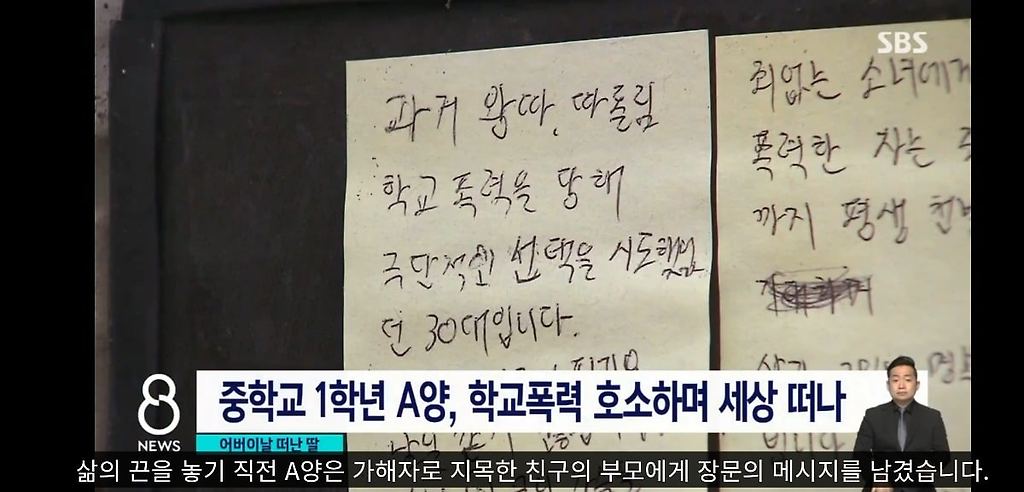 SBS
과거 왕따, 따돌림
학교폭력을 당해
극단적인 선택을 시도했었
던 30대입니다.
죄없는 소녀에게
폭력한 자는
까지 평생
8
NEWS
중학교 1학년 A양, 학교폭력 호소하며 세상 떠나
어버이날 떠난 딸
삶의 끈을 놓기 직전 A양은 가해자로 지목한 친구의 부모에게 장문의 메시지를 남겼습니다.